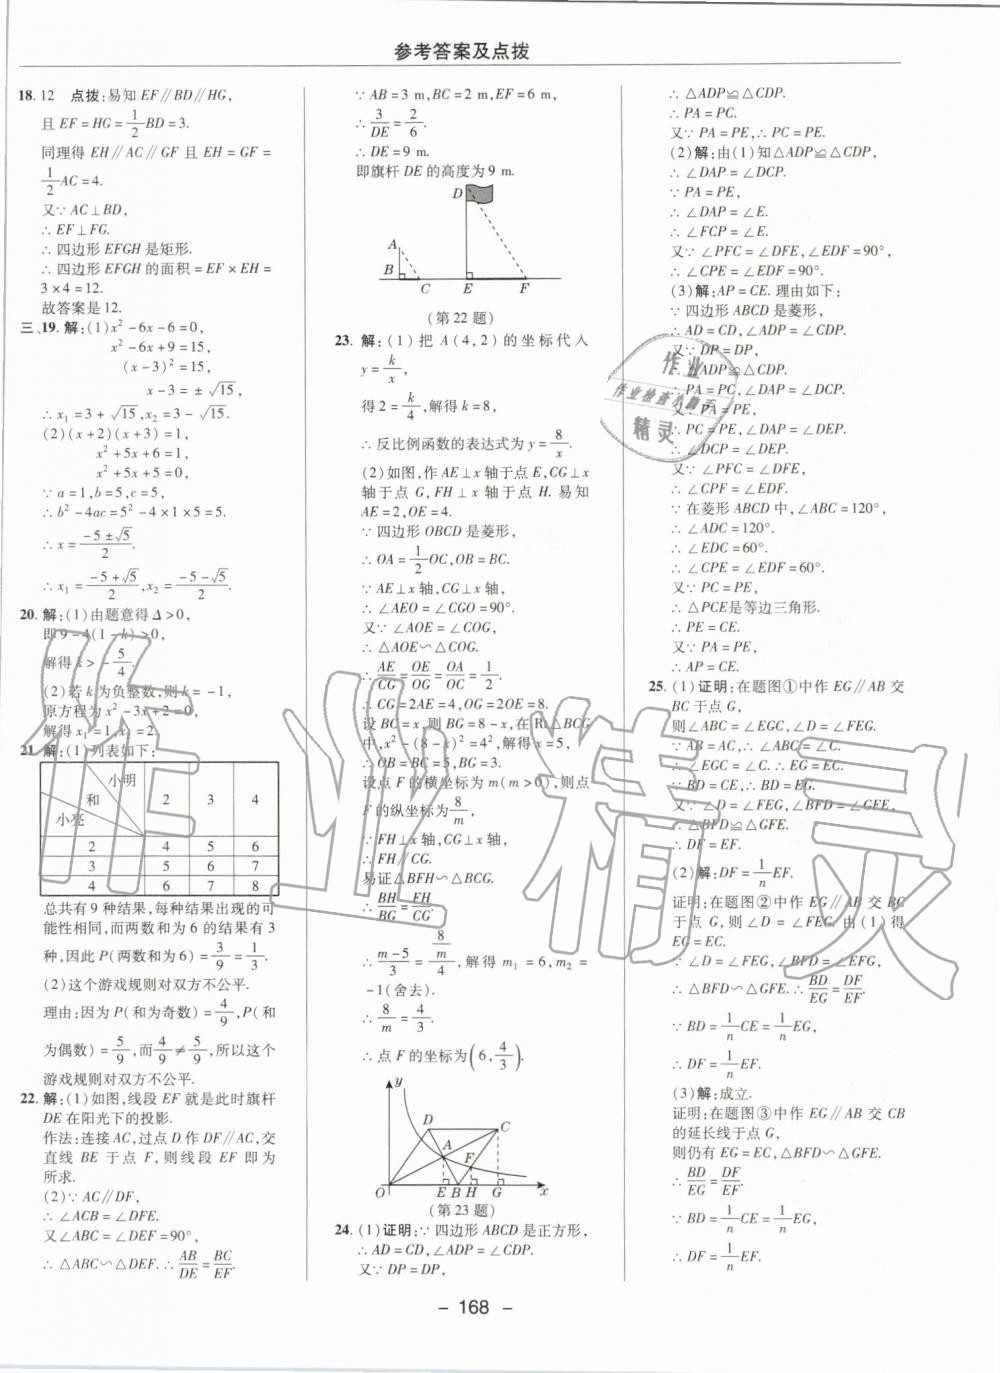 参考答案及点拨
18. 12　点拨:易知 EF∥BD∥HG,
且 EF=HG=1/2BD=3.
同理得 EH∥AC∥GF 且 EH=GF=
1/2AC=4.
又∵AC⊥BD,
∴EF⊥FG.
∴四边形 EFGH 是矩形.
∴四边形 EFGH 的面积=EF×EH=
3×4=12.
故答案是 12.
三、19. 解:(1)x²-6x-6=0,
x²-6x+9=15,
(x-3)²=15,
x-3=±√15,
∴x₁=3+√15,x₂=3-√15.
(2)(x+2)(x+3)=1,
x²+5x+6=1,
x²+5x+5=0,
∵a=1,b=5,c=5,
∴b²-4ac=5²-4×1×5=5.
∴x=(-5±√5)/2.
∴x₁=(-5+√5)/2,x₂=(-5-√5)/2.
20. 解:(1)由题意得 Δ>0,
即 9-4(1-k)>0,
解得 k>-5/4.
(2)若 k 为负整数,则 k=-1,
原方程为 x²-3x+2=0,
解得 x₁=1,x₂=2.
21. 解:(1)列表如下:
小明
和 2 3 4
小亮
2 4 5 6
3 5 6 7
4 6 7 8
总共有 9 种结果,每种结果出现的可
能性相同,而两数和为 6 的结果有 3
种,因此 P(两数和为 6)=3/9=1/3.
(2)这个游戏规则对双方不公平.
理由:因为 P(和为奇数)=4/9,P(和
为偶数)=5/9,而4/9≠5/9,所以这个
游戏规则对双方不公平.
22. 解:(1)如图,线段 EF 就是此时旗杆
DE 在阳光下的投影.
作法:连接 AC,过点 D 作 DF∥AC,交
直线 BE 于点 F,则线段 EF 即为
所求.
(2)∵AC∥DF,
∴∠ACB=∠DFE.
又∠ABC=∠DEF=90°,
∴△ABC∽△DEF.∴AB/DE=BC/EF.
∵AB=3 m,BC=2 m,EF=6 m,
∴3/DE=2/6.
∴DE=9 m.
即旗杆 DE 的高度为 9 m.
D
A
B
C E F
(第 22 题)
23. 解:(1)把 A(4,2)的坐标代入
y=k/x,
得 2=k/4,解得 k=8,
∴反比例函数的表达式为 y=8/x.
(2)如图,作 AE⊥x 轴于点 E,CG⊥x
轴于点 G,FH⊥x 轴于点 H. 易知
AE=2,OE=4.
∵四边形 OBCD 是菱形,
∴OA=1/2OC,OB=BC.
∵AE⊥x 轴,CG⊥x 轴,
∴∠AEO=∠CGO=90°.
又∵∠AOE=∠COG,
∴△AOE∽△COG.
∴AE/CG=OE/OG=OA/OC=1/2.
∴CG=2AE=4,OG=2OE=8.
设 BC=x,则 BG=8-x,在 Rt△BCG
中,x²-(8-x)²=4²,解得 x=5,
∴OB=BC=5,BG=3.
设点 F 的横坐标为 m(m>0),则点
F 的纵坐标为8/m,
∵FH⊥x 轴,CG⊥x 轴,
∴FH∥CG.
易证△BFH∽△BCG.
∴BH/BG=FH/CG.
∴(m-5)/3=(8/m)/4,解得 m₁=6,m₂=
-1(舍去).
∴8/m=4/3.
∴点 F 的坐标为(6,4/3).
y
D C
A
F
O E B H G x
(第 23 题)
24. (1)证明:∵四边形 ABCD 是正方形,
∴AD=CD,∠ADP=∠CDP.
又∵DP=DP,
∴△ADP≌△CDP.
∴PA=PC.
又∵PA=PE,∴PC=PE.
(2)解:由(1)知△ADP≌△CDP,
∴∠DAP=∠DCP.
∵PA=PE,
∴∠DAP=∠E.
∴∠FCP=∠E.
又∵∠PFC=∠DFE,∠EDF=90°,
∴∠CPE=∠EDF=90°.
(3)解:AP=CE. 理由如下:
∵四边形 ABCD 是菱形,
∴AD=CD,∠ADP=∠CDP.
又∵DP=DP,
∴△ADP≌△CDP.
∴PA=PC,∠DAP=∠DCP.
又∵PA=PE,
∴PC=PE,∠DAP=∠DEP.
∴∠DCP=∠DEP.
又∵∠PFC=∠DFE,
∴∠CPF=∠EDF.
∵在菱形 ABCD 中,∠ABC=120°,
∴∠ADC=120°.
∴∠EDC=60°.
∴∠CPE=∠EDF=60°.
又∵PC=PE,
∴△PCE是等边三角形.
∴PE=CE.
又∵PA=PE,
∴AP=CE.
25. (1)证明:在题图①中作 EG∥AB 交
BC 于点 G,
则∠ABC=∠EGC,∠D=∠FEG.
∵AB=AC,∴∠ABC=∠C.
∴∠EGC=∠C.∴EG=EC.
∵BD=CE,∴BD=EG.
又∵∠D=∠FEG,∠BFD=∠GFE,
∴△BFD≌△GFE.
∴DF=EF.
(2)解:DF=1/nEF.
证明:在题图②中作 EG∥AB 交 BC
于点 G,则∠D=∠FEG. 由(1)得
EG=EC.
∵∠D=∠FEG,∠BFD=∠EFG,
∴△BFD∽△GFE.∴BD/EG=DF/EF.
∵BD=1/nCE=1/nEG,
∴DF=1/nEF.
(3)解:成立.
证明:在题图③中作 EG∥AB 交 CB
的延长线于点 G,
则仍有 EG=EC,△BFD∽△GFE.
∴BD/EG=DF/EF.
∵BD=1/nCE=1/nEG,
∴DF=1/nEF.
- 168 -
作业精灵
作业
精灵